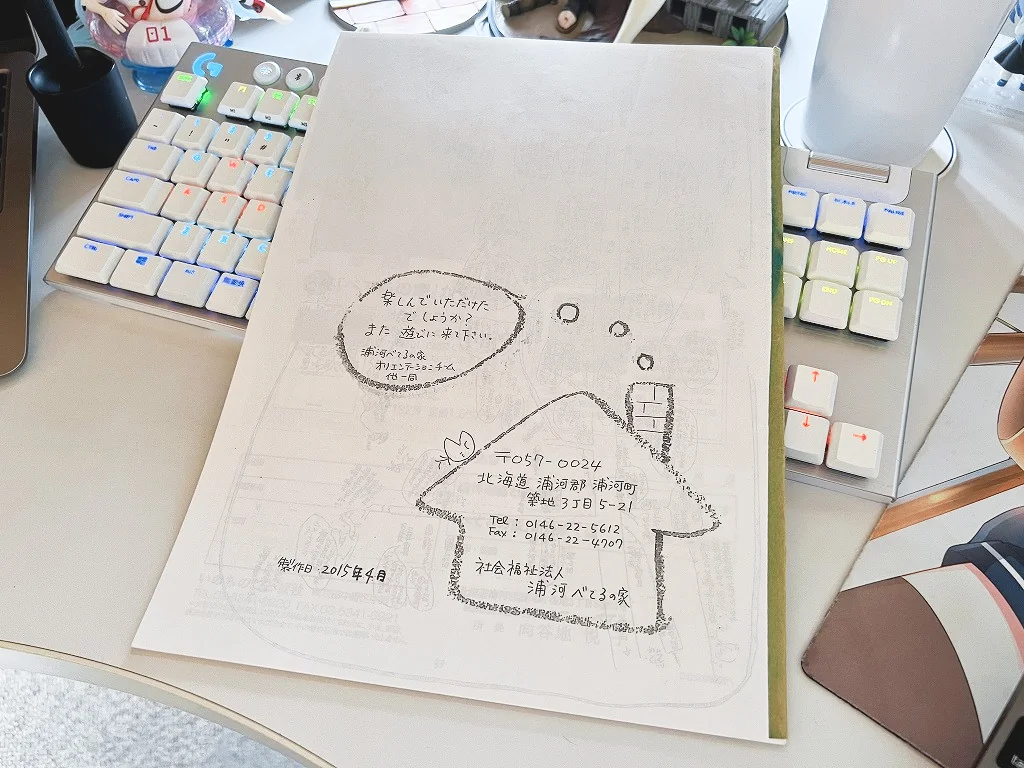 01
G
CAPS
SHIFT
CTRL
ALT
無変換
HOME
PG UP
END
PG DN
楽しんでいただけた
でしょうか?
また 遊びに来て下さい。
浦河べてるの家
オリエンテーションチーム
他一同
〒057-0024
北海道 浦河郡 浦河町
築地 3丁目 5-21
Tel : 0146-22-5612
Fax : 0146-22-4707
社会福祉法人
浦河べてるの家
製作日:2015年4月